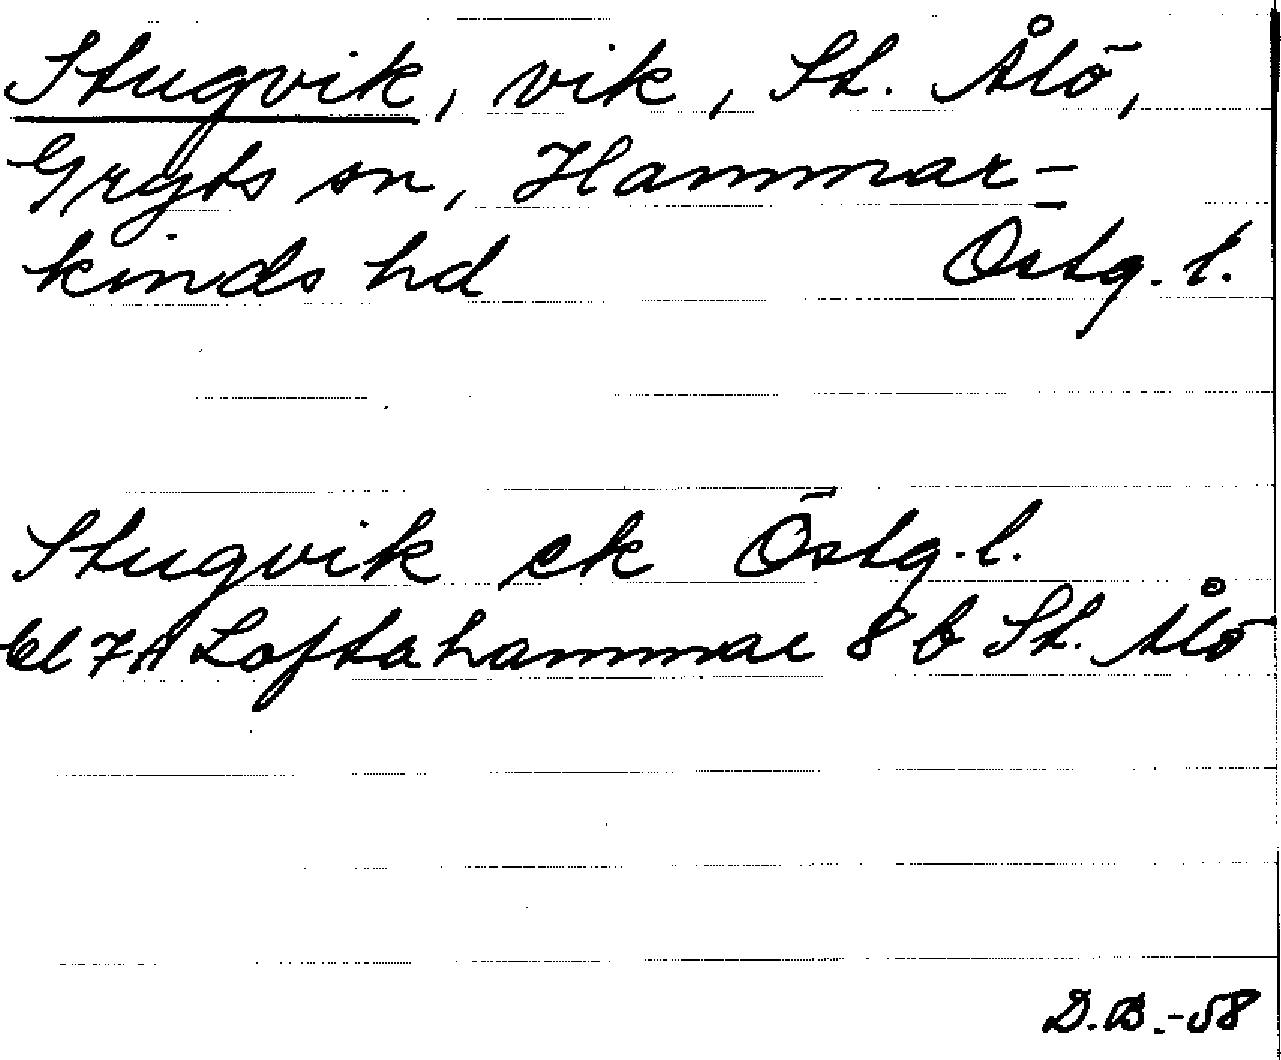 Stugvik, vik, St. Ålö,
Gryts sn, Hammar-
kinds hd Östg. l.
Stugvik ek Östg. l.
bl 7A Loftahammar 8 b St. Ålö
D.B.-58